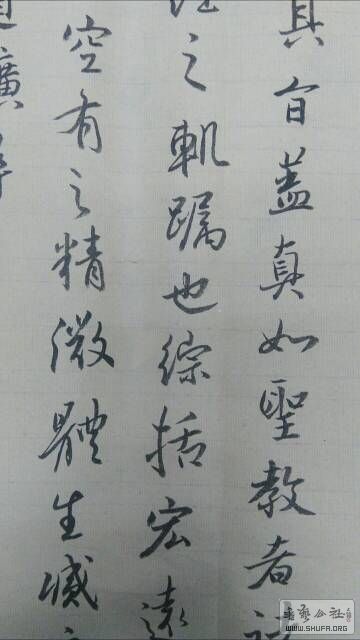 其旨盖真如聖教者諸
之軌躅也综括宏遠
空有之精微體生滅之
廣尋
WWW.SHUFA.ORG